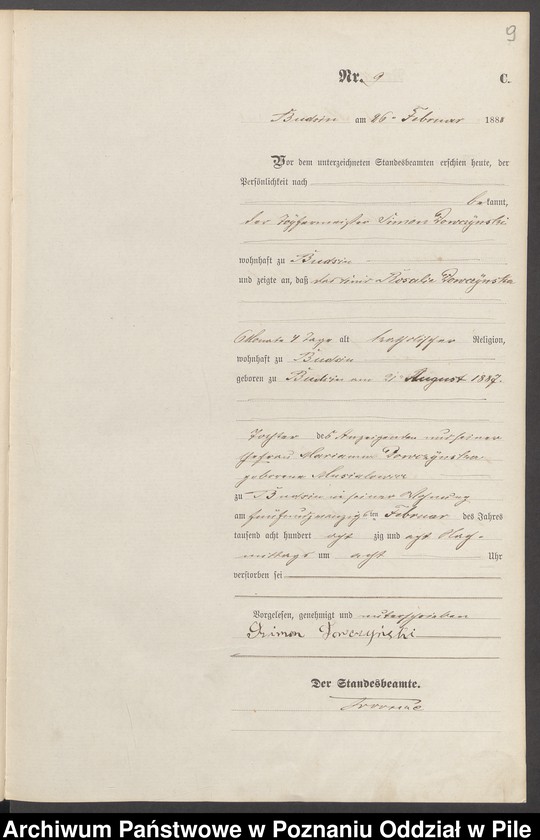 9
Nr. 9 C.
Budsin am 26. Februar 1888
Vor dem unterzeichneten Standesbeamten erschien heute, der
Persönlichkeit nach
bekannt,
der Töpfermeister Simon Dowczynski
wohnhaft zu Budsin
und zeigte an, daß das Kind Rosalie Dowczynska
6 Monate 4 Tage alt katholischer Religion,
wohnhaft zu Budsin
geboren zu Budsin am 21. August 1887.
Tochter des Anzeigenden und seiner
Ehefrau Marianna Dowczynska
geborene
zu Budsin in seiner Wohnung
am fünfundzwanzigsten Februar des Jahres
tausend acht hundert acht zig und acht Nach-
mittags um acht Uhr
verstorben sei
Vorgelesen, genehmigt und unterschrieben
Szimon Dowczyński
Der Standesbeamte.
Archiwum Państwowe w Poznaniu Oddział w Pile